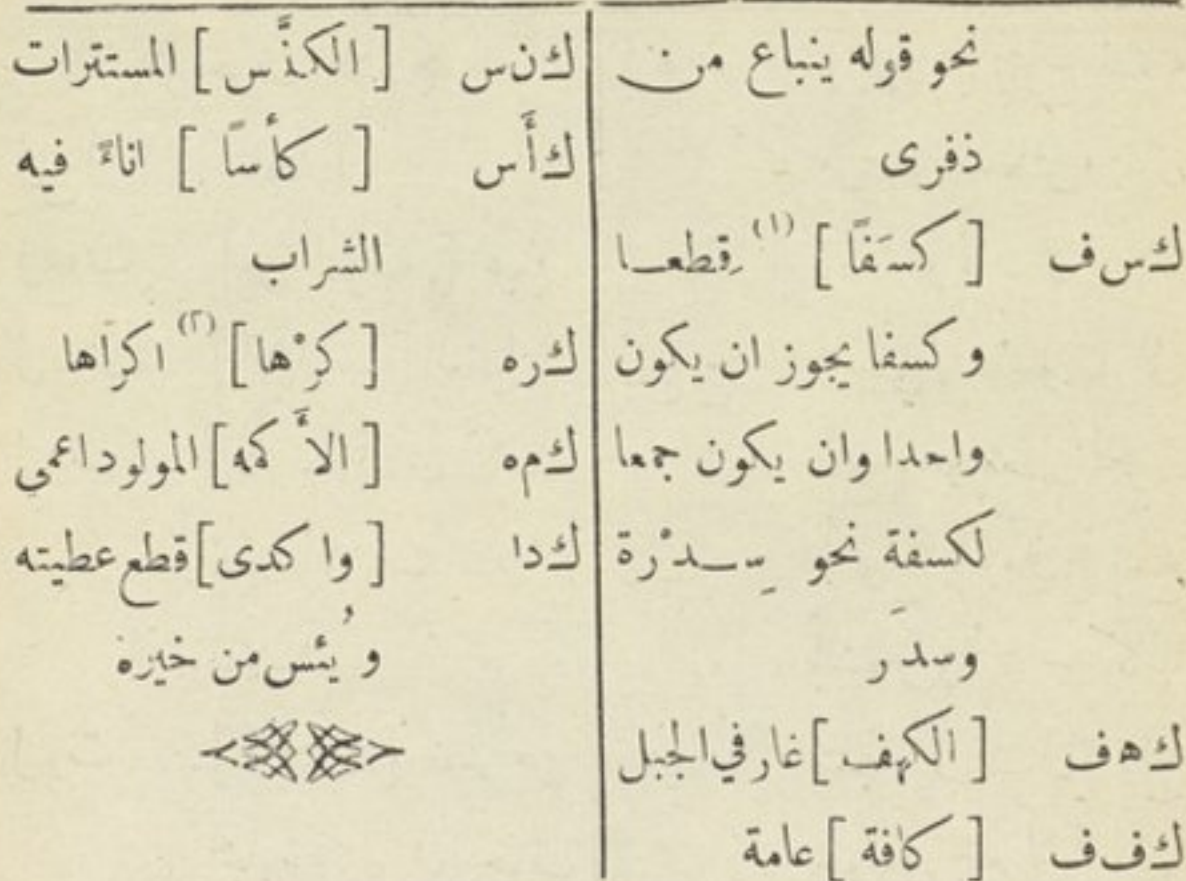 نحو قوله ينباع من
ذفرى
ك س ف [ كسَفًا ] (١) قِطعا
و كسفا يجوز ان يكون
واحدا وان يكون جمعا
لكسفة نحو سِدْرة
وسدَر
ك ه ف [ الكهف ] غار في الجبل
ك ف ف [ كافة ] عامة
ك ن س [ الكنَّس ] المستترات
ك أ س [ كأسًا ] اناءً فيه
الشراب
ك ر ه [ كرْها ] (٢) اكراها
ك م ه [ الأكمه ] المولود اعمى
ك د ا [ واكدى ] قطع عطيته
و يُئس من خيره